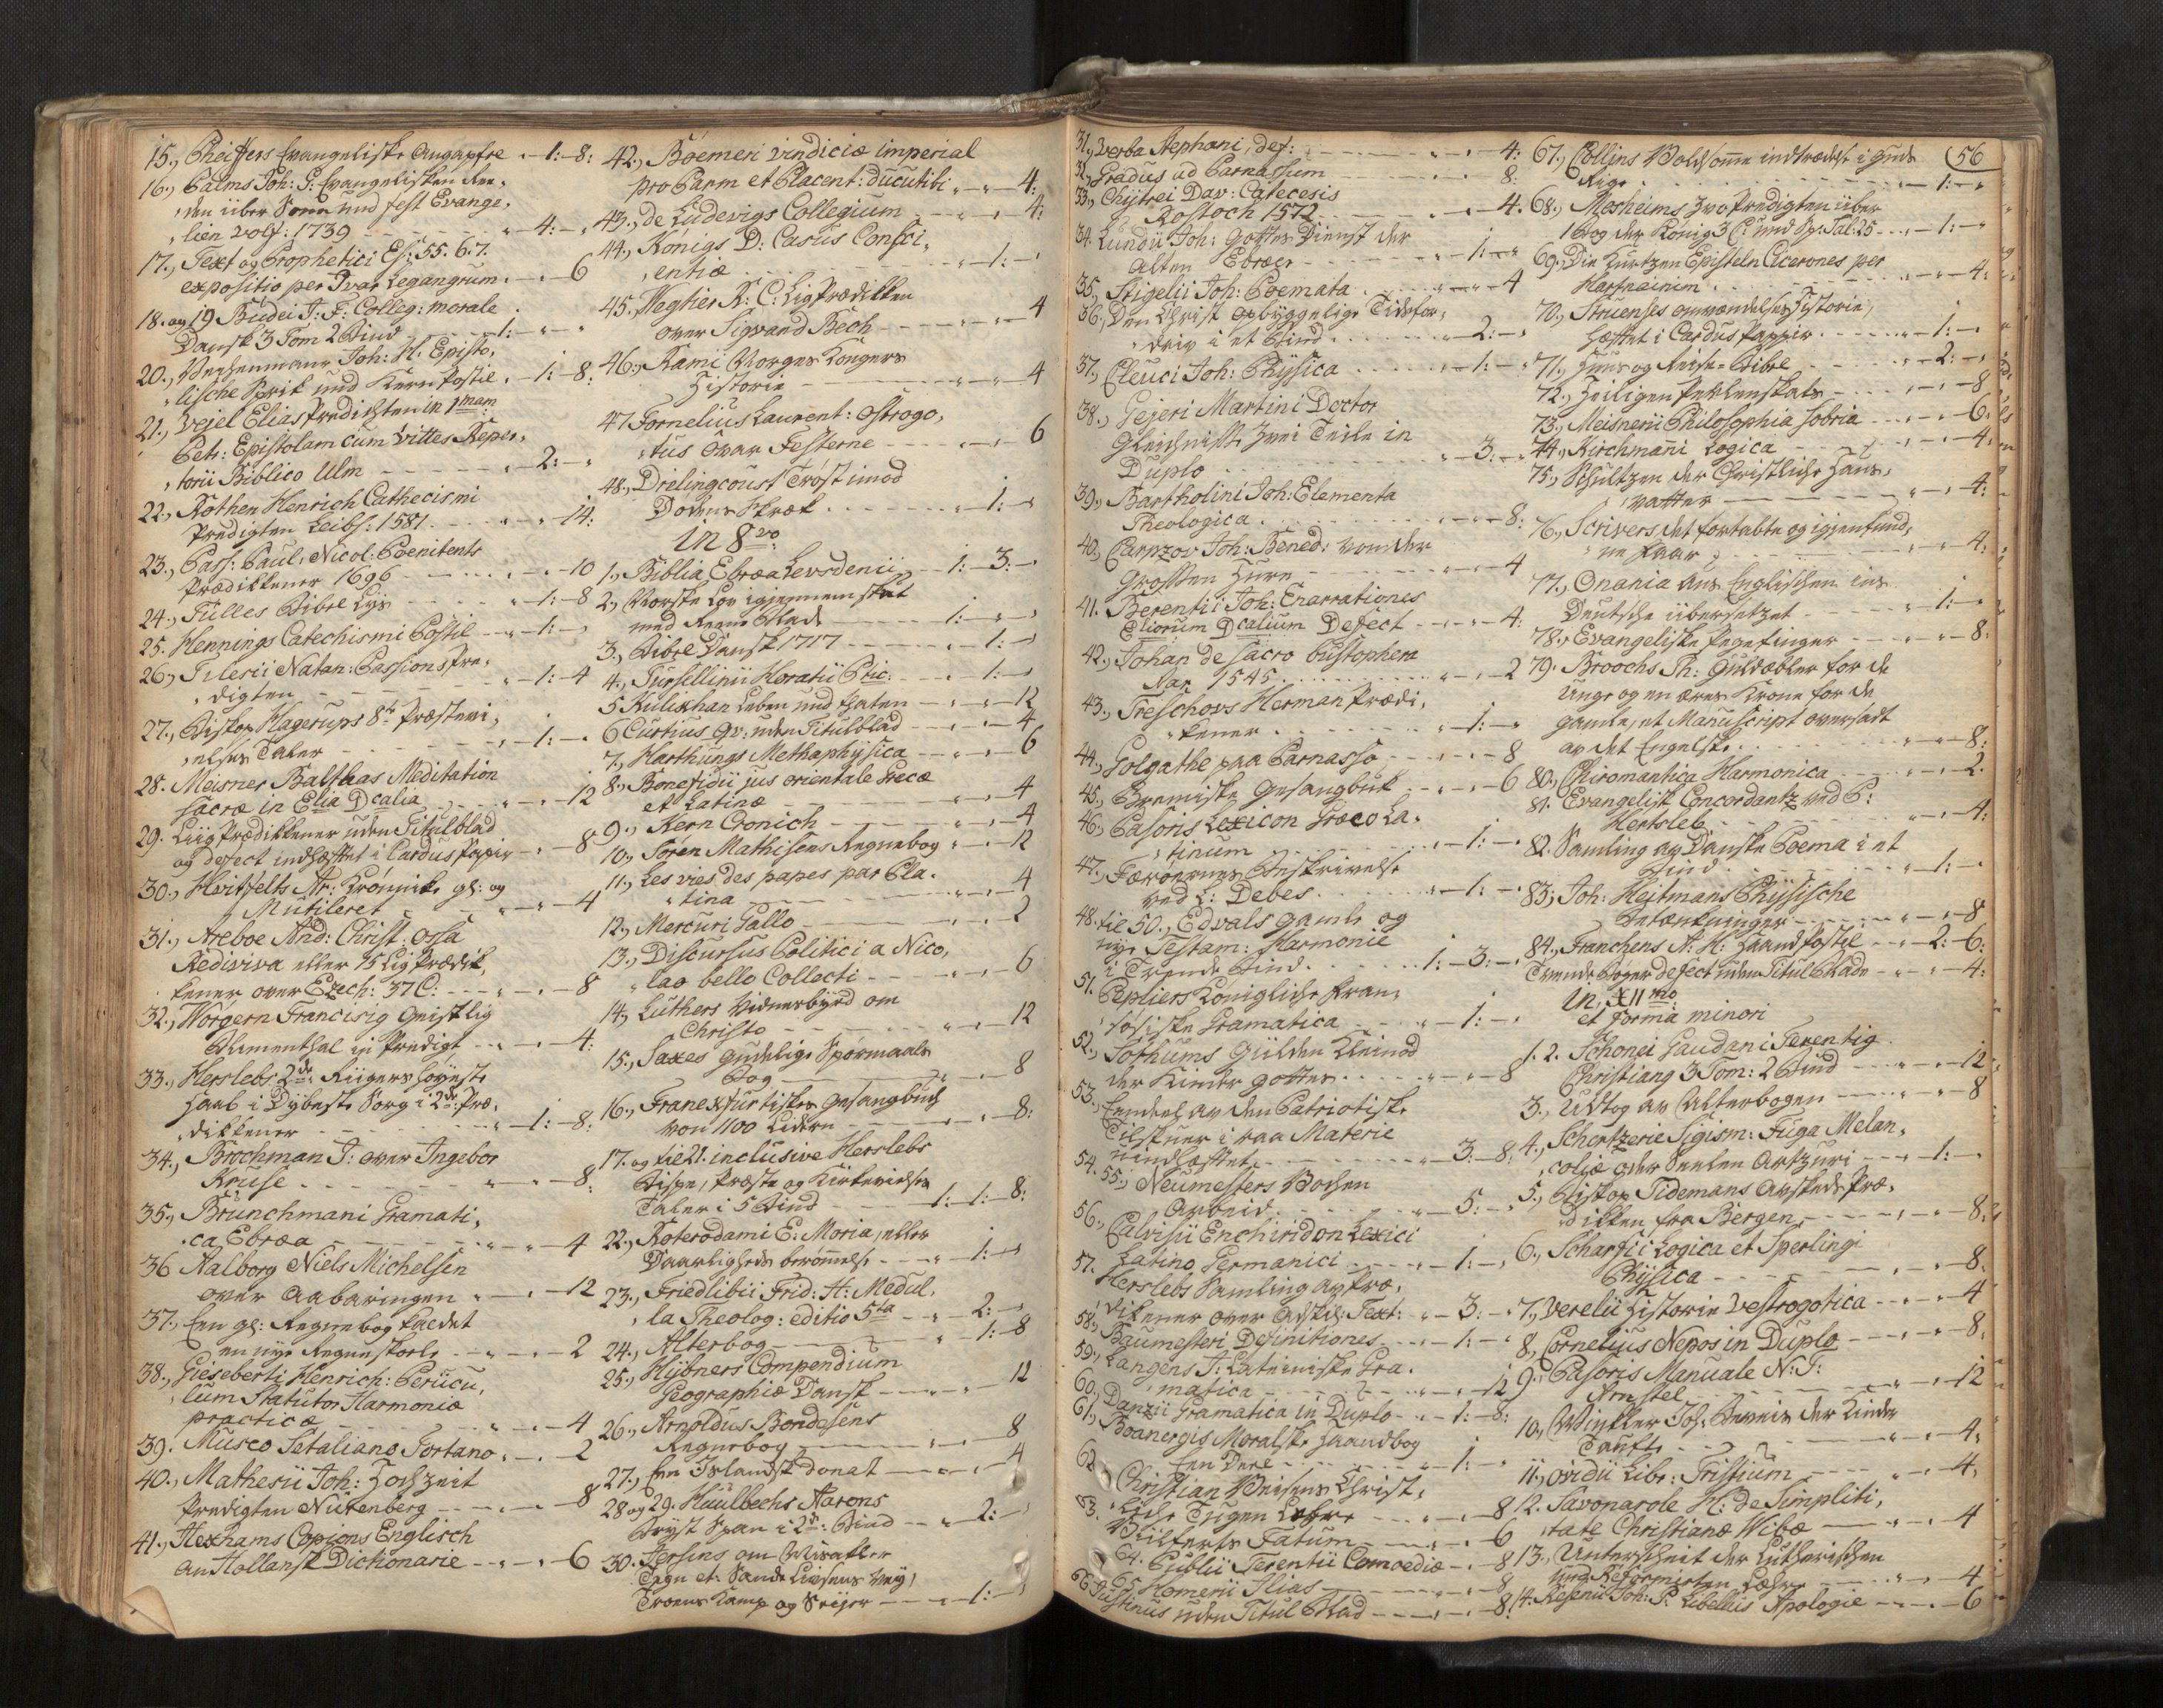 15., Pheiffers Evangeliske Augapfee „ 1: 8:
16., Palms Joh: P: Evangelisken Ree,
„den über Sonn und fest Evange,
„lien Wolf: 1739 „ 4: „
17., Text og Prophetici Es: 55. 6. 7.
expositio per Ivar Legangrum „ „ 6
18. og 19 Budei J: F: Colleg: morale
Dansk 3 Tom 2 Bind „ 1: „ „
20., Joh: H. Episto,
„lische Sprik und Kern Postil „ 1: 8:
21., Vejel Elias Predichten in 1mam
Petr: Epistolam cum vittes Reper,
„torii Biblico Ulm „ 2: „
22., Rothen Henrich Cathecismi
Predigten Leibs: 1581. „ „ 14:
23., Pass: Paul: Nicol: Poenitents
Prædikkener 1696 „ „ 10
24., Tülles Bibel Lys „ 1: 8
25. Hennings Catechismi Postil „ 1: „
26., Tilerii Natan: Passions Pre,
„digten „ 1: 4
27., Biskop Hagerups 8te Præstevi,
„elses Taler „ 1: „
28. Meisner Balthas Meditation
Sacræ in Elia Dcalia „ „ 12
29. Liig Prædikkener uden Titulblad
og defect indhæftet i Cardus Papir „ 8
30., Hvitfelts Ar: Krønnike gl: og
Mutileret „ „ 4
31., Areboe And: Christ: Ossa
Rediviva eller 15 Lig Prædik,
kener over Ezech: 37 C: „ „ 8
32., Worgern Francisig Geistlig
Blumenthal in Predigt „ „ 4:
33., Herslebs 2de: Riigers høyeste
Haab i Dybeste Sorg i 2de Præ,
„dikkener „ 1: 8:
34., Brochman J: over Ingebor
Kruse „ „ 8:
35., Brunchmani Gramati,
„ca Ebræa „ „ 4
36 Aalborg Niels Michelsen
over Aabaringen „ „ 12
37., Een gl: Regnebog kaldet
en nye Regneskole „ „ 2
38., Gieseberti Henrich: Pericu,
lum Statutor Harmoniæ
practicæ „ „ 4
39. Museo Setaliano Tortano „ „ 2
40., Mathesii Joh: Hochzeit
Predigten Nürenberg „ „ 8
41., Hexhams Copious Englisch
an Hollansk Dictionarie „ „ 6
42., Böemeri vindiciæ imperial
pro Parm et Placent: ducutibi „ „ 4:
43., de Ludevigs Collegium „ „ 4:
44., Königs D: Casus Consci,
„entiæ „ 1: „
45., Wegner K: C: Lig Prædikken
over Sigvard Bech „ „ 4
46., Rami Norges Kongers
Historie „ „ 4
47 Fornelius Laurent: ostrogo,
„tus over Festerne „ „ 6
48., Drelingcourt Trøst imod
Dødens Skræk „ 1: „
in 8vo
1., Biblia Ebræa Leusdenii „ 1: 3: „
2., Norske Lov igjennemskut
med Regne Blade „ 1: „
3., Bibel Dansk 1717 „ 1: „
4., Tursellinii Horatii Ptic: „ 1: „
5 Kulichan Leben und thaten „ „ 12
6 Curtius Qv: uden Titulblad „ „ 4
7., Harthungs Methaphysica „ „ 6
8., Bonefidii jus orientale Græcæ
et Latinæ „ „ 4
9., Kern Cronich „ „ 4
10., Søren Mathisens Regnebog „ „ 12
11., Les vies des papes par Pla,
„tina „ „ 4
12., Mercuri Gallo „ „ 2
13., Discursus Politici a Nico,
„lao bello Collecti „ „ 6
14., Luthers Vidnesbyrd om
Christo „ „ 12
15., Saxes gudelige Spørsmaals
Bog „ „ 8
16., Franckfurtiske Gesangbuch
von 1100 Lidern „ „ 8:
17. og til 21. inclusive Herslebs
Bispe, Præste og Kirkevielses
Taler i 5 Bind „ 1: 1: 8:
22., Roterodami E: Moria, eller
Daarligheds berømmelse „ 1: „
23., Friedlibii Frid: H: Medul,
„la Theolog: editio 5ta „ 2: „
24., Alterbog „ 1: 8
25., Hybners Compendium
Geographiæ Dansk „ „ 12
26., Arnoldus Bendesens
Regnebog „ „ 8
27., Een Islandsk donat „ „ 4
28 og 29. Haulbechs Aarons
Bryst Span i 2de: Bind „ 2: „
30. Jersins om Mirakler
Tegn et: Sande Livsens Vey,
Troens Kamp og Seyer „ 1: „
56
31., Verba Stephani, def: „ „ 4:
32., Gradus ad Parnassum 8:
33., Chytrei Dav: Catecesis
Rostoch 1572 „ „ 4.
34. Lundii Joh: Gottes Dienst der
Alten Ebræer „ 1: „
35., Stigelii Joh: Poemata „ „ 4
36., Den Christ opbyggelige Tidsfor,
„driv i et Bind „ 2: „
37., Cleuci Joh: Physica „ 1: „
38., Gejeri Martini Doctor
Gleichniss zwei Teile in
Duplo „ 3: „
39., Bartholini Joh: Elementa
Theologica „ „ 8:
40., Carpzov Joh: Bened: von der
Grossen Hure „ „ 4
41. Berentii Joh: Enarrationes
Eliorum Dcalium Defect „ „ 4:
42., Johan de Sacro bustophera
Par 1545 „ „ 2
43., Treschovs Herman Prædi,
„kener „ 1: „
44., Golgathe paa Parnasso „ „ 8
45., Bremiske Gesangbuk „ „ 6
46., Pasoris Lexicon Græco La,
„tinum „ 1: „
47., Færøernes Beskrivelse
ved L: Debes „ 1: „
48. til 50., Edvals gamle og
nye Testam: Harmonie
i Trende Bind „ 1: 3: „
51. Pepliers Königliche Fran,
„søsiske Gramatica „ 1: „
52., Sothums Gülden Kleinod
der Kinder Gottes „ „ 8
53., Eendeel av den Patriotiske
Tilskuer i raa Materie
uindhæftet „ 3: 8:
54. 55., Neumesters Wochen
Arbeid „ 5: „
56., Calvisii Enchiridon Lexici
Latino Germanici „ 1: „
57. Herslebs Samling av Præ,
„dikener over Adskil: Text: „ 3: „
58., Baumesteri Definitiones „ 1: „
59., Langens J: Latiniske Gra,
„matica „ „ 12
60., Danzii Gramatica in Duplo „ 1: 8:
61., Boanergis Moralske Haandbog
Een Deel „ 1: „
62. Christian Weisens Christ,
„liche Tugen Lehre „ „ 8
63. Vulferts Fatum „ „ 6
64. Publii Terentii Comoediæ „ „ 8
65. Homerii Ilias „ „ 8
66. Justinus uden Titul Blad „ „ 8:
67., Collins Voldsomme indtrædelse i Guds
Rige „ 1: „
68., Mosheims zvo Predigten über
1 Bog der König 3 C: und Sp: Sal: 25 „ 1: „
69., Die Kurtzen Episteln Cicerones per
Hartnaimm „ „ 4:
70., Struenses omvendelses Historie,
Hæftet i Cardus Pappir „ 1: „
71., Huus og Reise-Bibel „ 2: „
72., Heiligen Perlenskats „ „ 8
73., Meisnerii Philosophia sobria „ „ 6:
74., Kirchmani Logica „ „ 4:
75., Schultzen der Christliche Haus,
„vatter „ „ 4:
76., Scrivers det fortabte og igjenfund,
„ne Faar „ „ 4:
77., Onania aus Englischen ins
Deutsche übersetzet „ 1: „
78., Evangeliske Pegefinger „ „ 8:
79. Broochs Th: Guldæbler for de
Unge og en æres Krone for de
gamle, et Manuscript oversadt
av det Engelske „ „ 8:
80., Chiromantica Harmonica „ „ 2.
81. Evangelisk Concordantz ved P:
Hersleb „ „ 4:
82. Samling av Danske Poema i et
Bind „ 1: „
83., Joh: Heitmans Physische
Betænkninger „ „ 8
84., Franchens A: H: Haandpostil „ 2: 6:
Trende Bøger defect uden Titul Blade „ „ 4:
in XIImo
et forma minori
1. 2. Schonei Gaudani Terentig
Christiang 3 Tom: 2 Bind „ „ 12
3., Udtog av Alterbogen „ „ 8
4., Schertzerie Sigism: Fuga Melan,
„coliæ oder Seelen Artzuri „ 1: „
5., Biskop Tidemans Avskeds Præ,
dikken fra Bergen „ „ 8:
6., Scharfii Logica et Sperlingi
Physica „ „ 8:
7., Verelii Historie Vestrogotica „ „ 4
8., Cornelius Nepos in Duplo „ „ 8,
9., Pasoris Manuale N: T:
Amstel „ „ 12
10., Winkler Joh: Beweis der Kinder
Tauffe „ „ 4,
11., ovidii Libr: Tristium „ „ 4,
12. Savonarole H: de Simpliti,
„tate Christianæ Vitæ „ „ 4
13., Unterscheit der Lutherischen
und Reformirten Lehre „ „ 4
14. Resenii Joh: P: Libellus Apologie „ „ 6